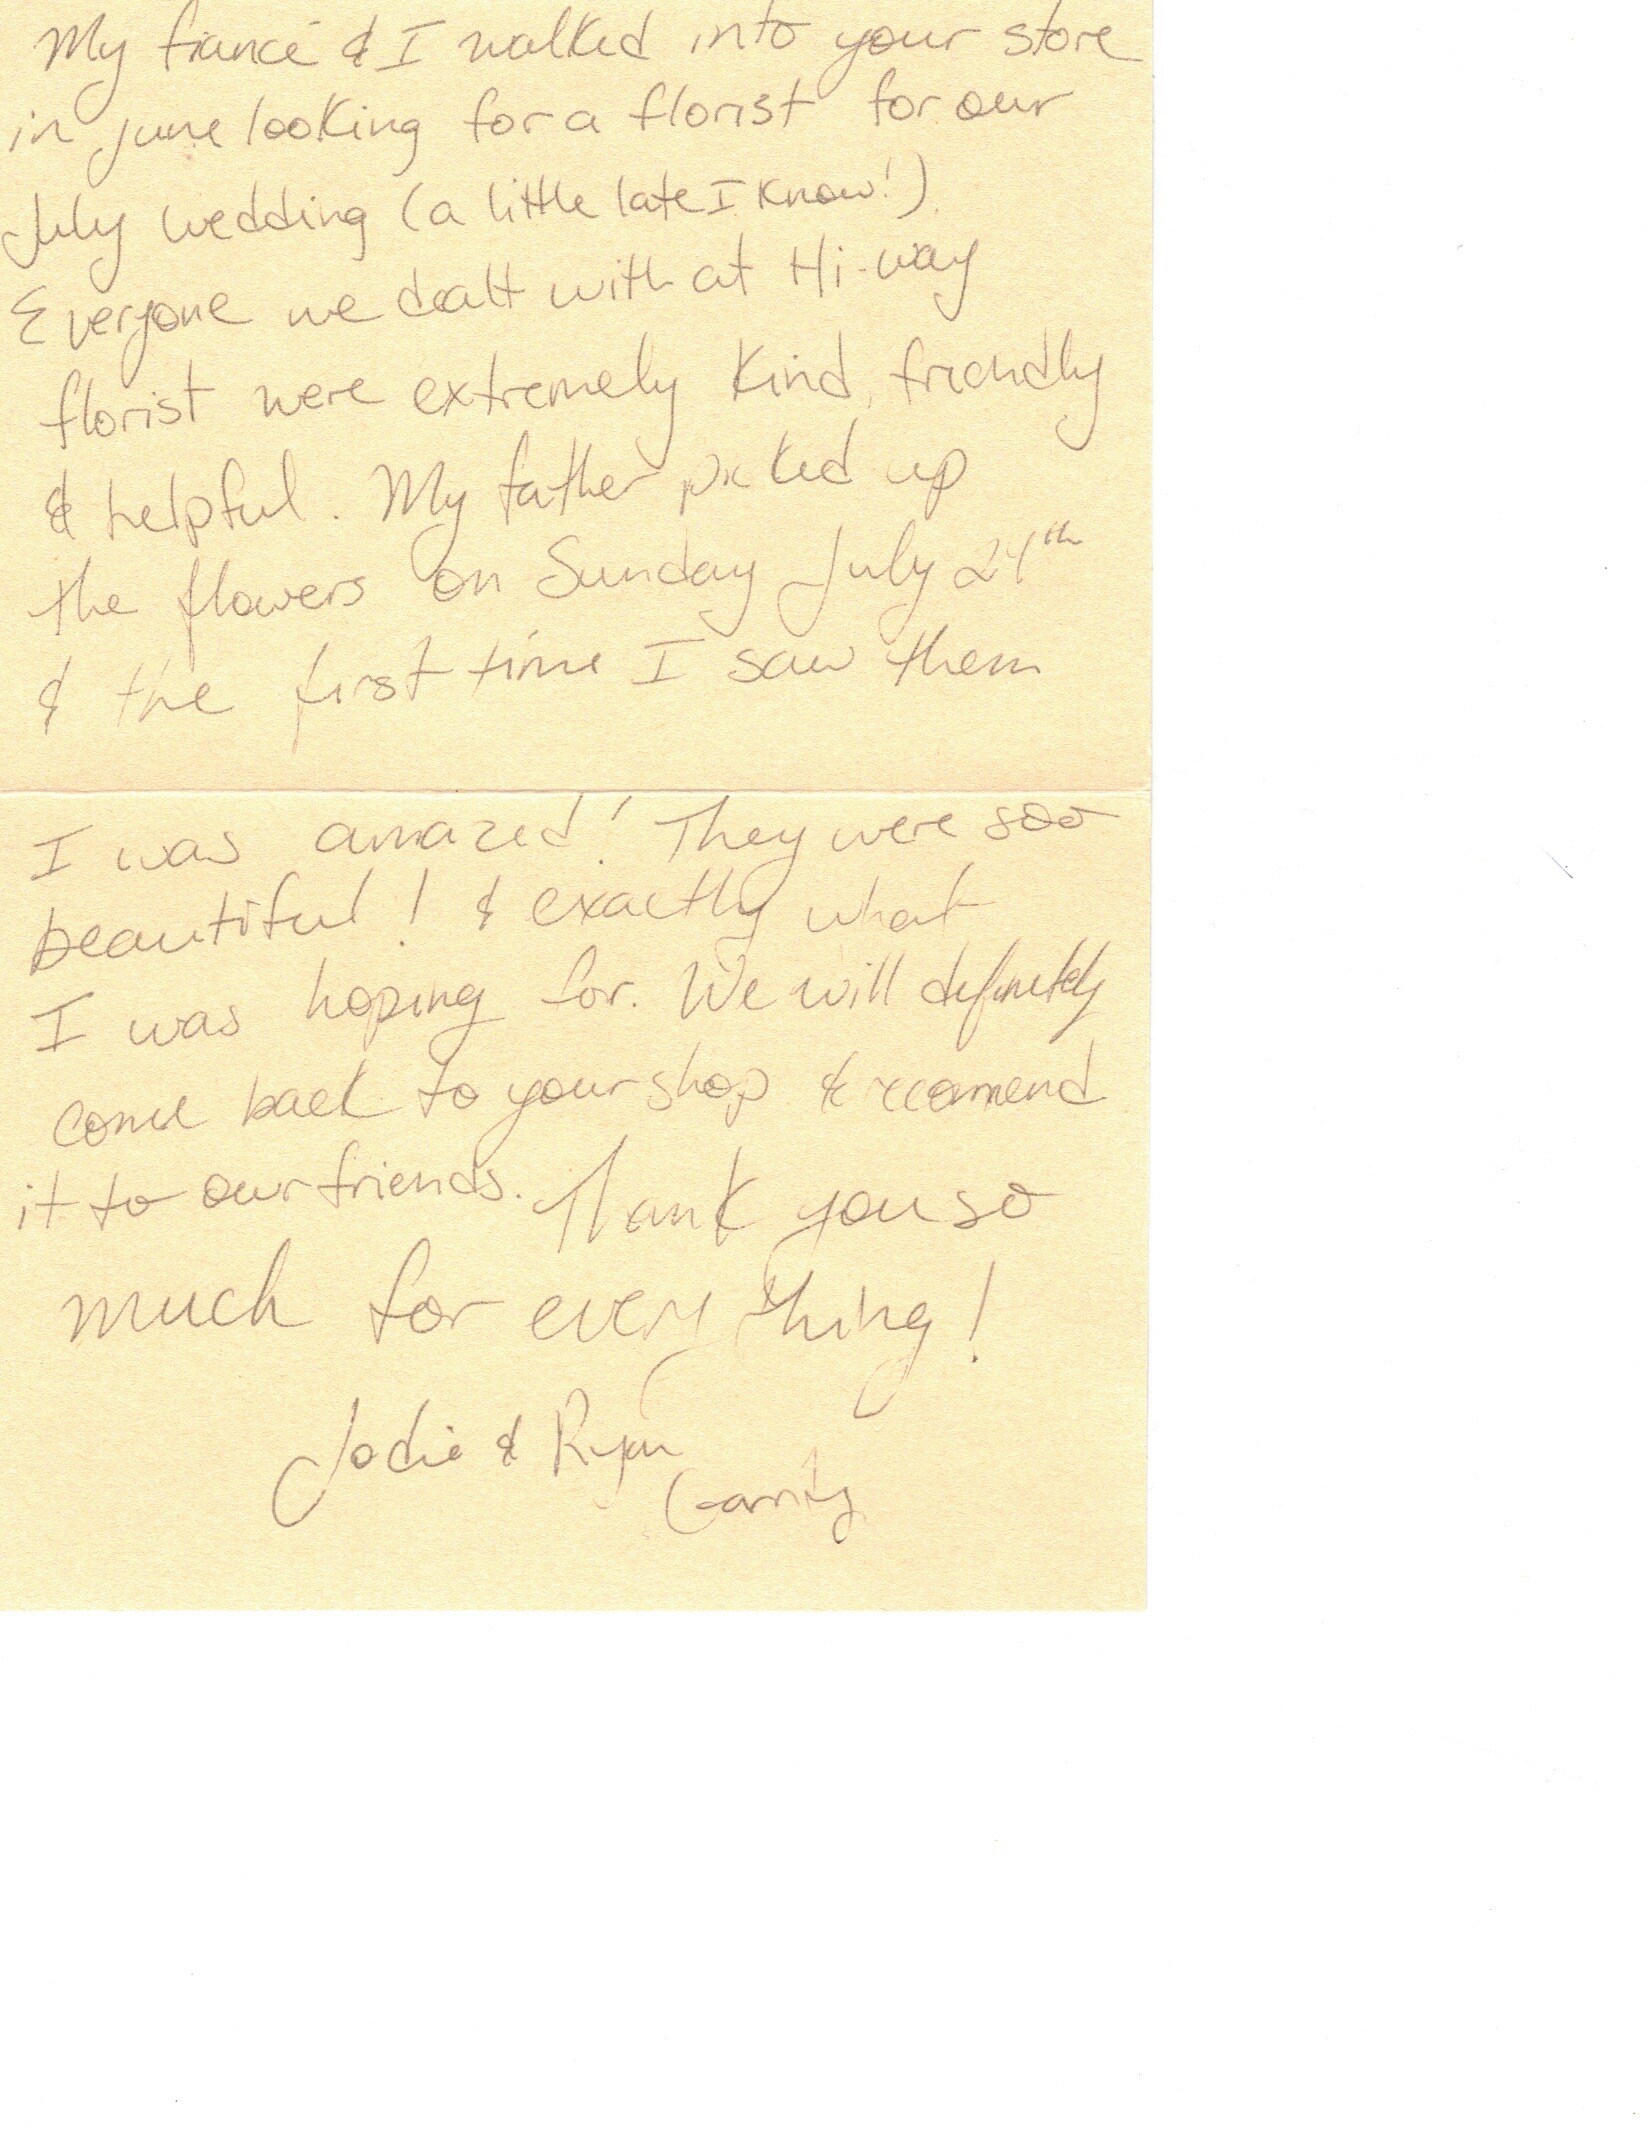 My fiancé & I walked into your store
in june looking for a florist for our
July wedding (a little late I know!).
Everyone we dealt with at Hi-way
florist were extremely kind, friendly
& helpful. My father picked up
the flowers on Sunday July 24th
& the first time I saw them
I was amazed! They were soo
beautiful! & exactly what
I was hoping for. We will definitely
come back to your shop & recomend
it to our friends. Thank you so
much for everything!
Jodie & Ryan
Garrity